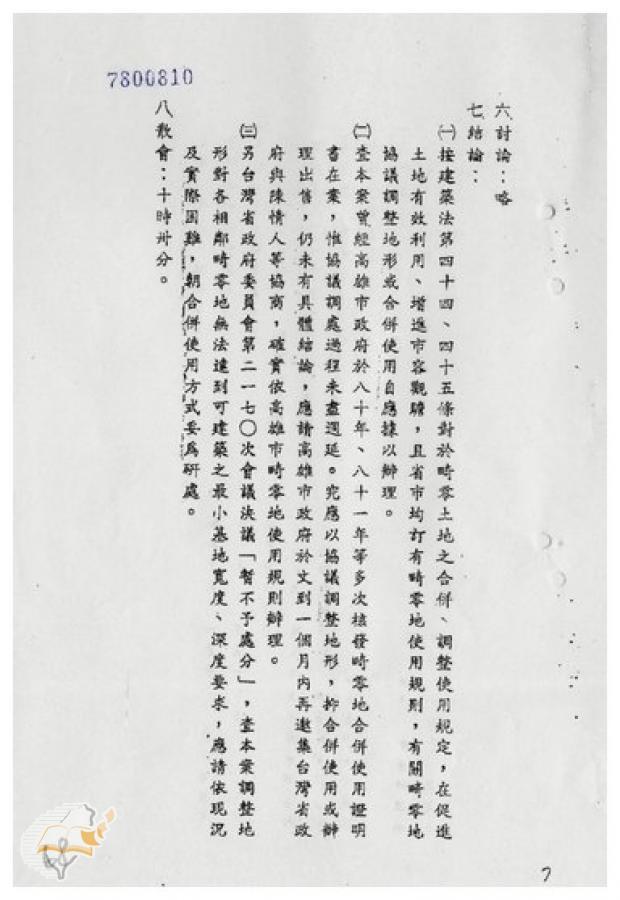 7800810
六討論：略
七結論：
㈠按建築法第四十四、四十五條對於畸零土地之合併、調整使用規定，在促進
土地有效利用、增進市容觀瞻，且省市均訂有畸零地使用規則，有關畸零地
協議調整地形或合併使用自應據以辦理。
㈡查本案曾經高雄市政府於八十年、八十一年等多次核發畸零地合併使用證明
書在案，惟協議調處過程未盡週延。究應以協議調整地形，抑合併使用或辦
理出售，仍未有具體結論，應請高雄市政府於文到一個月內再邀集台灣省政
府與陳情人等協商，確實依高雄市畸零地使用規則辦理。
㈢另台灣省政府委員會第二一七〇次會議決議「暫不予處分」，查本案調整地
形對各相鄰畸零地無法達到可建築之最小基地寬度、深度要求，應請依現況
及實際困難，朝合併使用方式妥為研處。
八散會：十時卅分。
7